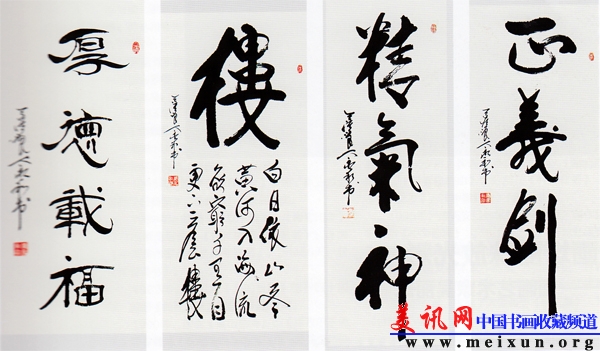 厚德載福
樓
白日依山尽
黄河入海流
欲窮千里目
更上一層樓
精氣神
正義劍
美讯网 中国书画收藏频道
www.meixun.org